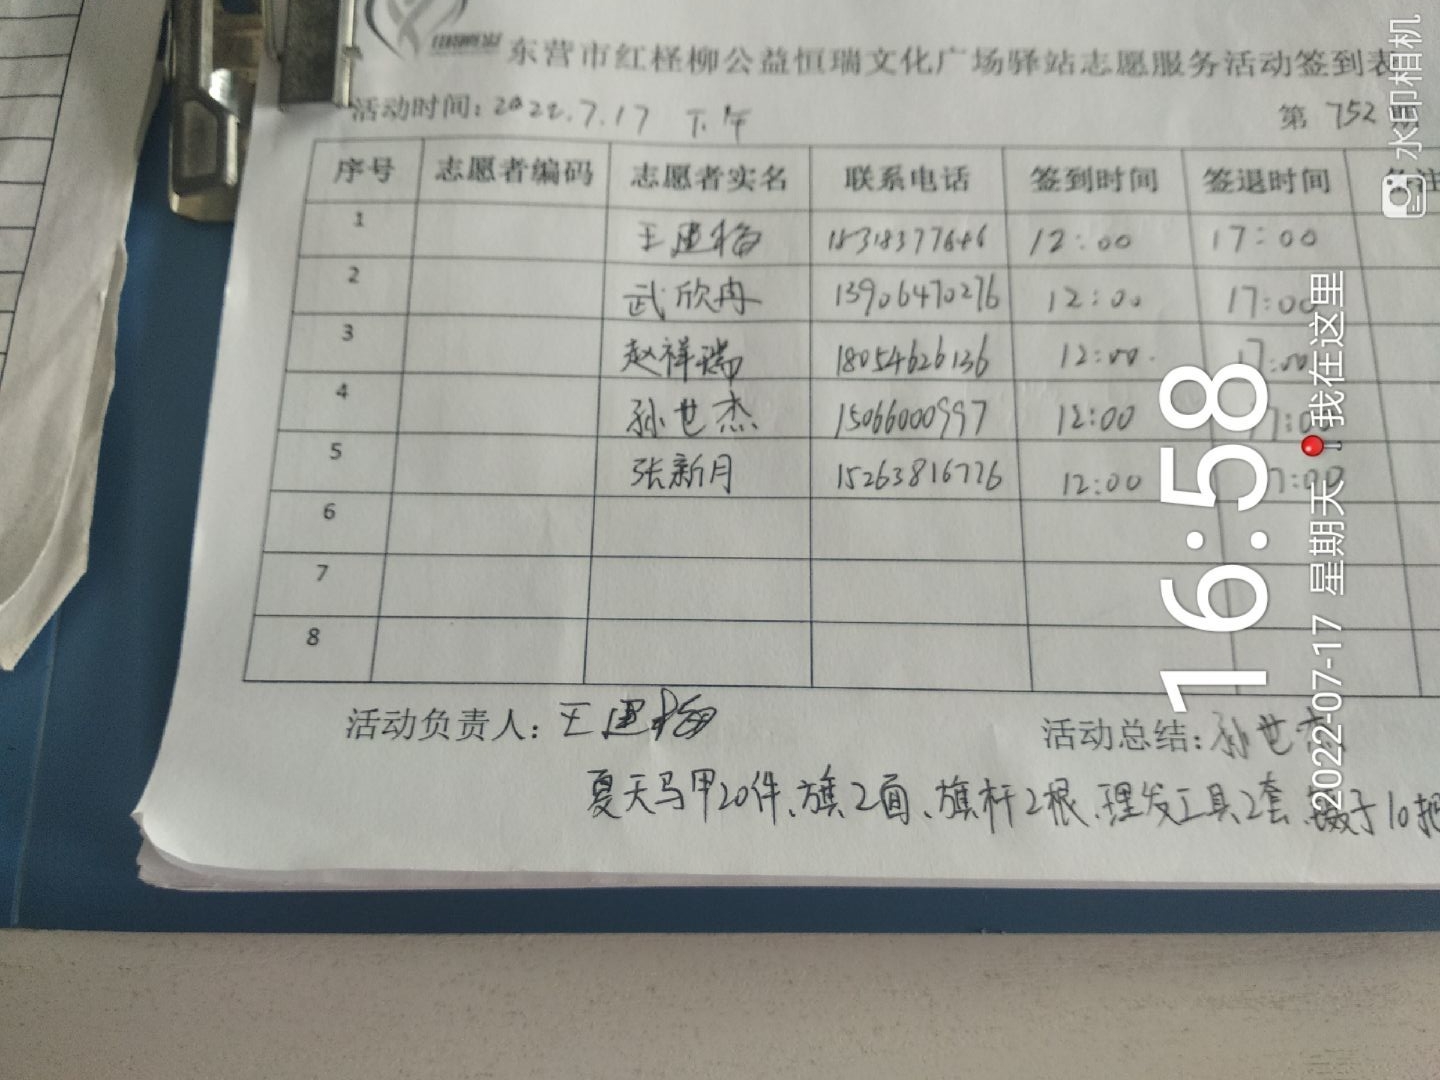 东营市红柽柳公益恒瑞文化广场驿站志愿服务活动签到表
活动时间: 2022.7.17 下午
第 752 期
序号 志愿者编码 志愿者实名 联系电话 签到时间 签退时间 备注
1 王建梅 12:00 17:00
2 武欣冉 13906470276 12:00 17:00
3 赵祥瑞 18054626136 12:00 17:00
4 孙世杰 15066000997 12:00 17:00
5 张新月 15263816776 12:00 17:00
6
7
8
活动负责人: 王建梅
活动总结: 孙世杰
夏天马甲20件、旗2面、旗杆2根、理发工具2套、子10把
16:58
2022-07-17 星期天 我在这里
水印相机